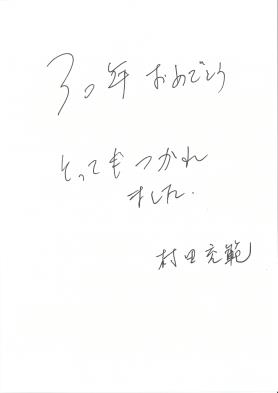 30年 おめでとう
とってもつかれ
ました.
村田充範